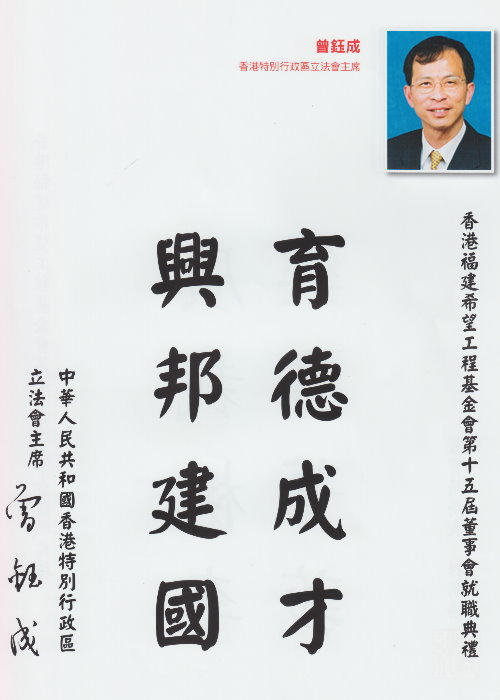 曾鈺成
香港特別行政區立法會主席
香港福建希望工程基金會第十五屆董事會就職典禮
育德成才
興邦建國
中華人民共和國香港特別行政區
立法會主席
曾鈺成